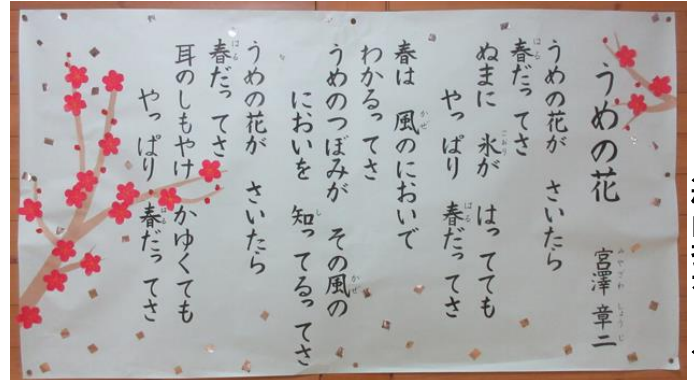 うめの花
宮澤 章二
みやざわ しょうじ
うめの花が さいたら
春だってさ
はる
ぬまに 氷が はってても
こおり
やっぱり 春だってさ
はる
春は 風のにおいで
かぜ
わかるってさ
うめのつぼみが その風の
かぜ
においを 知ってるってさ
し
うめの花が さいたら
春だってさ
はる
耳のしもやけ かゆくても
やっぱり 春だってさ
はる